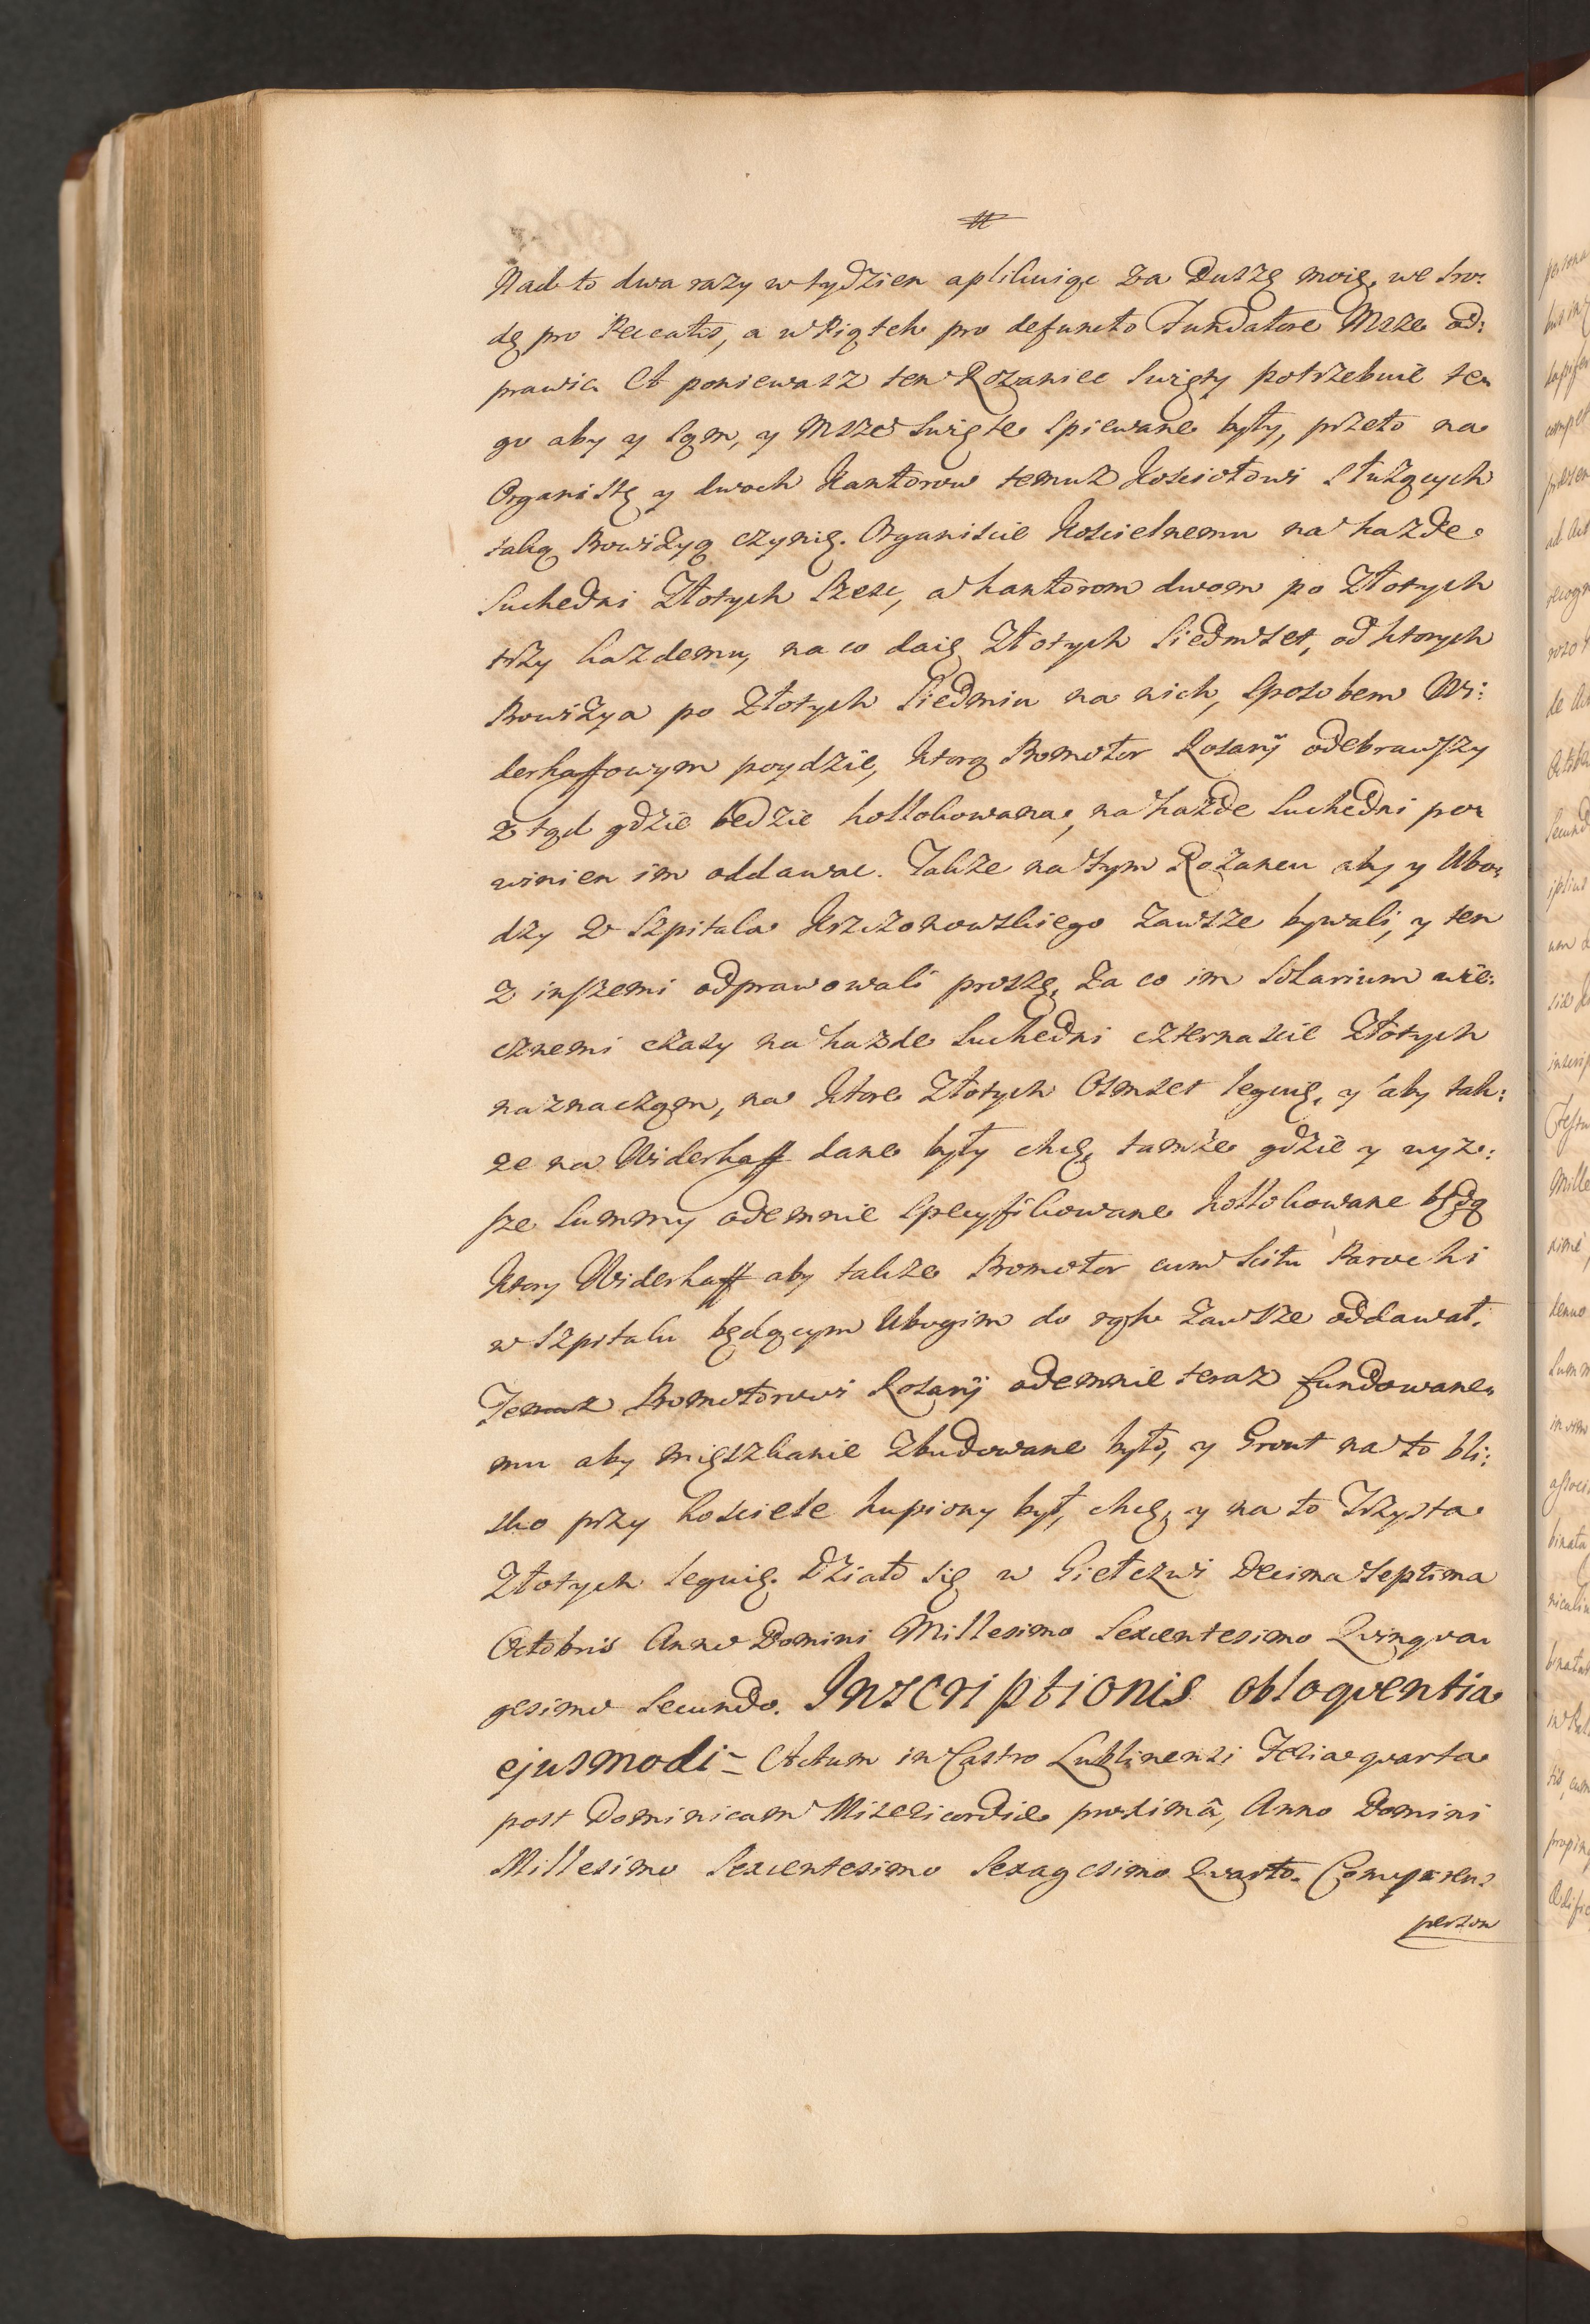 Nad to dwa razy w tydzien aplikuiąc za Duszę moię, we Sro:
dę pro Peccatis, a w Piątek pro defuncto Fundatore Msze od:
prawic. Et poniewasz ten Rozaniec Swięty potrzebuie te:
go aby y sąm, y Msze Swięte spiewane były, przeto na
Organistę y dwoch Kantorow temuz Kosciołowi służących
taką Prowizyą czynię. Organiscie Koscielnemu na kazde
Suchedni Złotych szesc, a kantorom dwom po Złotych
trzy kazdemu, na co daię Złotych Siedmset, od ktorych
Prowizya po Złotych Siedmiu na nich, sposobem Wi:
derhaffowym poydzie, ktorą Promotor Rosarij odebrawszy
z tąd gdzie bedzie kollokowana, na kazde Suchedni po:
winien im oddawac. Takze na tym Rozancu aby y Ubo:
dzy z Szpitala Krzczonowskiego zawsze bywali, y ten
z inszemi odprawowali proszę, za co im Solarium wie:
cznemi czasy na kazde Suchedni czternascie Złotych
naznacząm, na ktore Złotych Osmset leguię, y aby tak:
ze na Widerhaff dane były chcę, tamże gdzie y wyz:
sze Summy odemnie specyfikowane kollokowane będą
ktory Widerhaff aby takze Promotor cum Scitu Parochi
w Szpitalu będącym Ubogim do rąk zawsze oddawał.
Temuz Promotorowi Rosarij odemnie teraz fundowane:
mu aby mięszkanie zbudowane było, y Grunt na to bli:
sko przy kosciele kupiony był, chcę, y na to Trzysta
Złotych leguię. Działo się w Giełczwi Decima Septima
Octobris Anno Domini Millesimo Sexcentesimo Qvinqva:
gesimo Secundo. Inscriptionis obloqventia
ejusmodi – Actum in Castro Lublinensi Feria qvarta
post Dominicam Misericordiæ proximâ, Anno Domini
Millesimo Sexcentesimo Sexagesimo Qvarto. Comparens
person